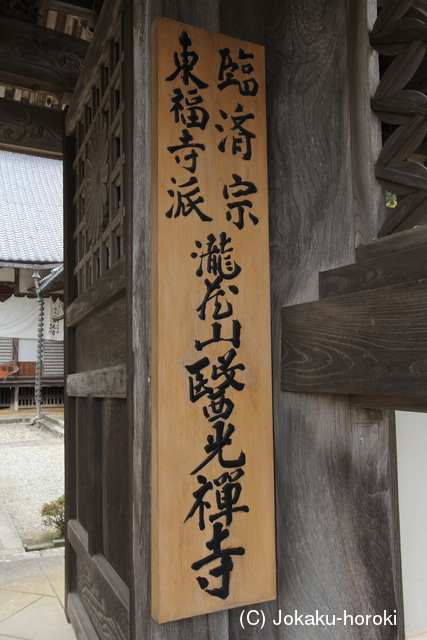 臨済宗
東福寺派
瀧蔵山醫光禪寺
(C) Jokaku-horoki